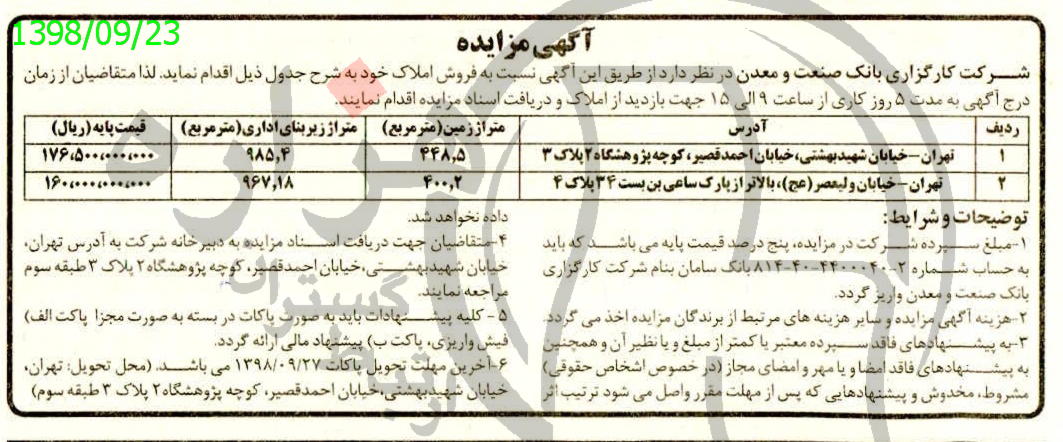 1398/09/23
آگهی مزایده
شــرکت کارگزاری بانک صنعت و معدن در نظر دارد از طریق این آگهی نسبت به فروش املاک خود به شرح جدول ذیل اقدام نماید. لذا متقاضیان از زمان
درج آگهی به مدت ۵ روز کاری از ساعت ۹ الی ۱۵ جهت بازدید از املاک و دریافت اسناد مزایده اقدام نمایند.
ردیف آدرس متراژ زمین (مترمربع) متراژ زیربنای اداری (مترمربع) قیمت پایه (ریال)
۱ تهران – خیابان شهیدبهشتی، خیابان احمدقصیر، کوچه پژوهشگاه ۲ پلاک ۳ ۴۴۸,۵ ۹۸۵,۴ ۱۷۶,۵۰۰,۰۰۰,۰۰۰
۲ تهران – خیابان ولیعصر (عج)، بالاتر از پارک ساعی بن بست ۳۴ پلاک ۴ ۴۰۰,۲ ۹۶۷,۱۸ ۱۶۰,۰۰۰,۰۰۰,۰۰۰
توضیحات و شرایط:
۱-مبلغ ســپرده شــرکت در مزایده، پنج درصد قیمت پایه می باشــد که باید
به حساب شــماره ۲-۴۴۰۰۰۴۰-۴۰-۸۱۴ بانک سامان بنام شرکت کارگزاری
بانک صنعت و معدن واریز گردد.
۲-هزینه آگهی مزایده و سایر هزینه های مرتبط از برندگان مزایده اخذ می گردد.
۳-به پیشــنهادهای فاقد ســپرده معتبر یا کمتر از مبلغ و یا نظیر آن و همچنین
به پیشــنهادهای فاقد امضا و یا مهر و امضای مجاز (در خصوص اشخاص حقوقی)
مشروط، مخدوش و پیشنهادهایی که پس از مهلت مقرر واصل می شود ترتیب اثر
داده نخواهد شد.
۴-متقاضیان جهت دریافت اســناد مزایده به دبیرخانه شرکت به آدرس تهران،
خیابان شهیدبهشــتی، خیابان احمدقصیر، کوچه پژوهشگاه ۲ پلاک ۳ طبقه سوم
مراجعه نمایند.
۵- کلیه پیشــنهادات باید به صورت پاکات در بسته به صورت مجزا پاکت الف)
فیش واریزی، پاکت ب) پیشنهاد مالی ارائه گردد.
۶-آخرین مهلت تحویل پاکات ۱۳۹۸/۰۹/۲۷ می باشــد. (محل تحویل: تهران،
خیابان شهیدبهشتی، خیابان احمدقصیر، کوچه پژوهشگاه ۲ پلاک ۳ طبقه سوم)